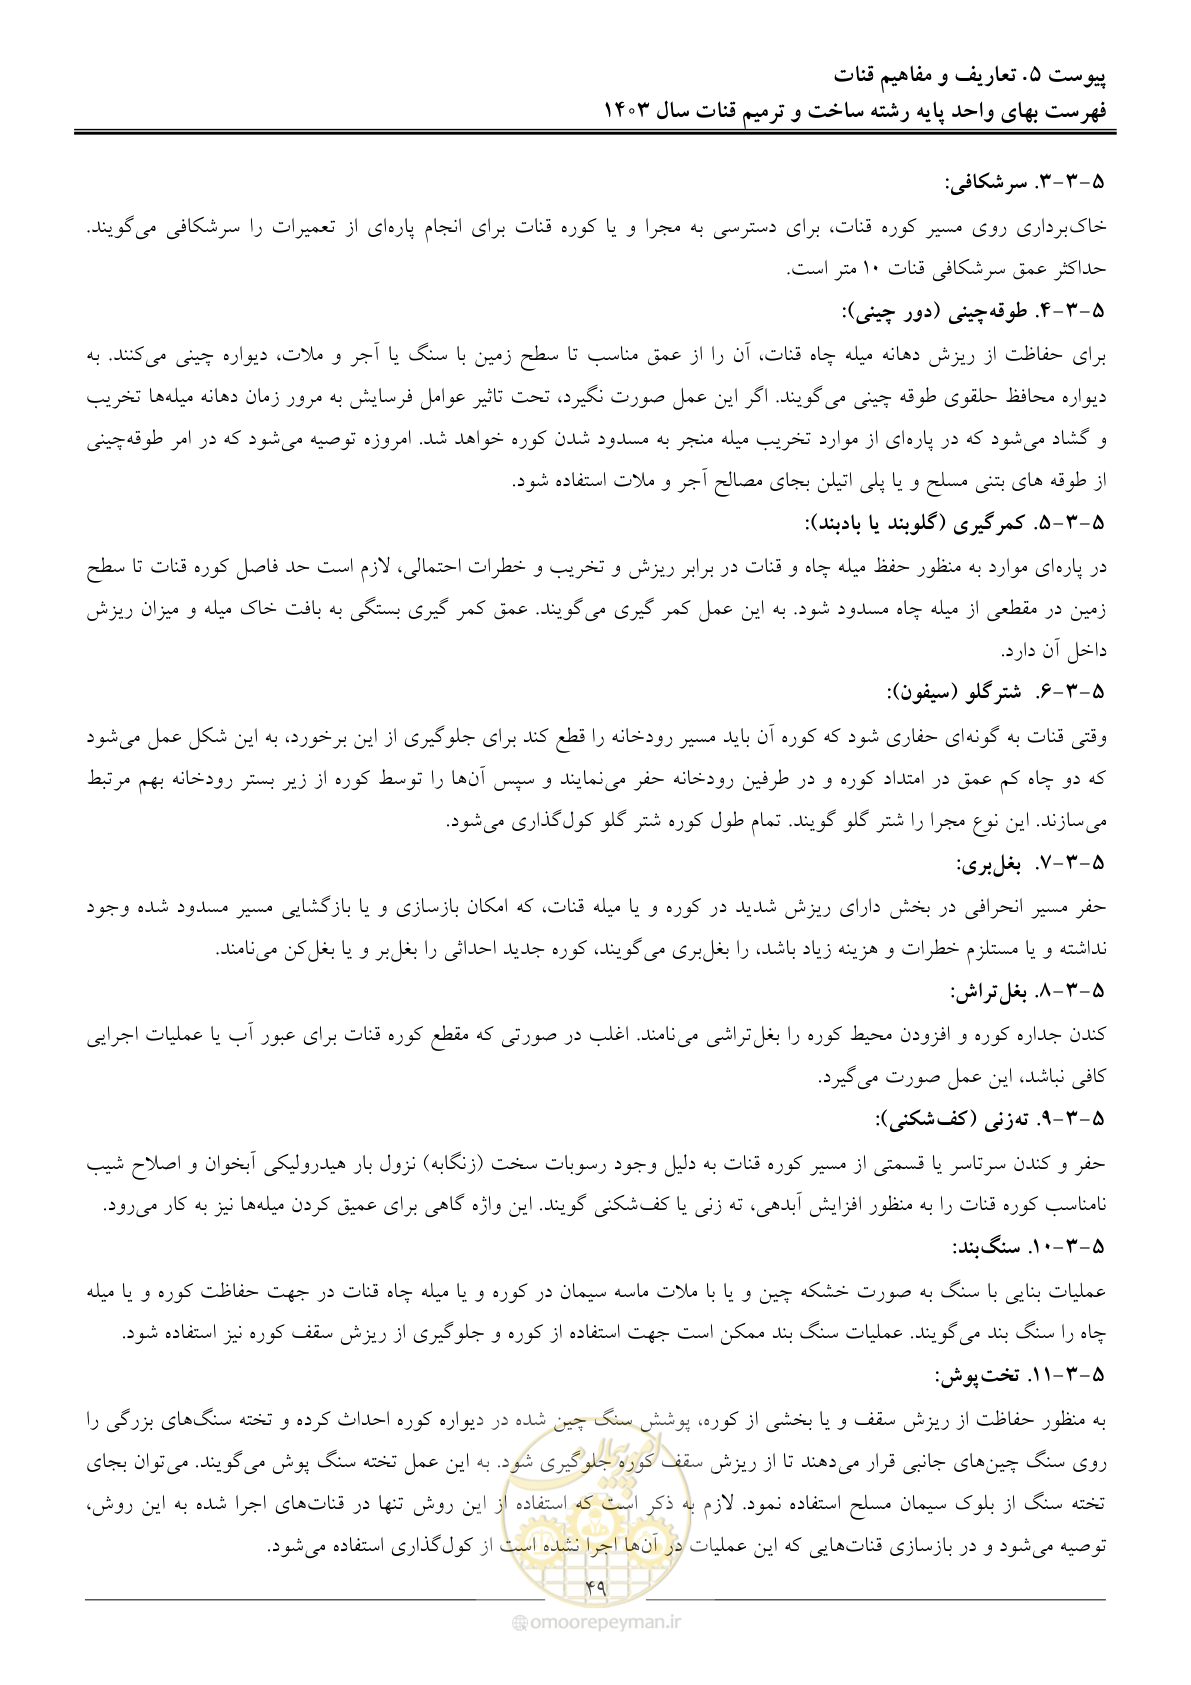 پیوست ۵. تعاریف و مفاهیم قنات
فهرست بهای واحد پایه رشته ساخت و ترمیم قنات سال ۱۴۰۳
۵-۳-۳. سرشکافی:
خاک‌برداری روی مسیر کوره قنات، برای دسترسی به مجرا و یا کوره قنات برای انجام پاره‌ای از تعمیرات را سرشکافی می‌گویند.
حداکثر عمق سرشکافی قنات ۱۰ متر است.
۵-۳-۴. طوقه‌چینی (دور چینی):
برای حفاظت از ریزش دهانه میله چاه قنات، آن را از عمق مناسب تا سطح زمین با سنگ یا آجر و ملات، دیواره چینی می‌کنند. به
دیواره محافظ حلقوی طوقه چینی می‌گویند. اگر این عمل صورت نگیرد، تحت تاثیر عوامل فرسایش به مرور زمان دهانه میله‌ها تخریب
و گشاد می‌شود که در پاره‌ای از موارد تخریب میله منجر به مسدود شدن کوره خواهد شد. امروزه توصیه می‌شود که در امر طوقه‌چینی
از طوقه های بتنی مسلح و یا پلی اتیلن بجای مصالح آجر و ملات استفاده شود.
۵-۳-۵. کمرگیری (گلوبند یا بادبند):
در پاره‌ای موارد به منظور حفظ میله چاه و قنات در برابر ریزش و تخریب و خطرات احتمالی، لازم است حد فاصل کوره قنات تا سطح
زمین در مقطعی از میله چاه مسدود شود. به این عمل کمر گیری می‌گویند. عمق کمر گیری بستگی به بافت خاک میله و میزان ریزش
داخل آن دارد.
۵-۳-۶. شترگلو (سیفون):
وقتی قنات به گونه‌ای حفاری شود که کوره آن باید مسیر رودخانه را قطع کند برای جلوگیری از این برخورد، به این شکل عمل می‌شود
که دو چاه کم عمق در امتداد کوره و در طرفین رودخانه حفر می‌نمایند و سپس آن‌ها را توسط کوره از زیر بستر رودخانه بهم مرتبط
می‌سازند. این نوع مجرا را شتر گلو گویند. تمام طول کوره شتر گلو کول‌گذاری می‌شود.
۵-۳-۷. بغل‌بری:
حفر مسیر انحرافی در بخش دارای ریزش شدید در کوره و یا میله قنات، که امکان بازسازی و یا بازگشایی مسیر مسدود شده وجود
نداشته و یا مستلزم خطرات و هزینه زیاد باشد، را بغل‌بری می‌گویند، کوره جدید احداثی را بغل‌بر و یا بغل‌کن می‌نامند.
۵-۳-۸. بغل‌تراش:
کندن جداره کوره و افزودن محیط کوره را بغل‌تراشی می‌نامند. اغلب در صورتی که مقطع کوره قنات برای عبور آب یا عملیات اجرایی
کافی نباشد، این عمل صورت می‌گیرد.
۵-۳-۹. ته‌زنی (کف‌شکنی):
حفر و کندن سرتاسر یا قسمتی از مسیر کوره قنات به دلیل وجود رسوبات سخت (زنگابه) نزول بار هیدرولیکی آبخوان و اصلاح شیب
نامناسب کوره قنات را به منظور افزایش آبدهی، ته زنی یا کف‌شکنی گویند. این واژه گاهی برای عمیق کردن میله‌ها نیز به کار می‌رود.
۵-۳-۱۰. سنگ‌بند:
عملیات بنایی با سنگ به صورت خشکه چین و یا با ملات ماسه سیمان در کوره و یا میله چاه قنات در جهت حفاظت کوره و یا میله
چاه را سنگ بند می‌گویند. عملیات سنگ بند ممکن است جهت استفاده از کوره و جلوگیری از ریزش سقف کوره نیز استفاده شود.
۵-۳-۱۱. تخت‌پوش:
به منظور حفاظت از ریزش سقف و یا بخشی از کوره، پوشش سنگ چین شده در دیواره کوره احداث کرده و تخته سنگ‌های بزرگی را
روی سنگ چین‌های جانبی قرار می‌دهند تا از ریزش سقف کوره جلوگیری شود. به این عمل تخته سنگ پوش می‌گویند. می‌توان بجای
تخته سنگ از بلوک سیمان مسلح استفاده نمود. لازم به ذکر است که استفاده از این روش تنها در قنات‌های اجرا شده به این روش،
توصیه می‌شود و در بازسازی قنات‌هایی که این عملیات در آن‌ها اجرا نشده است از کول‌گذاری استفاده می‌شود.
امور پیمان
۴۹
omoorepeyman.ir